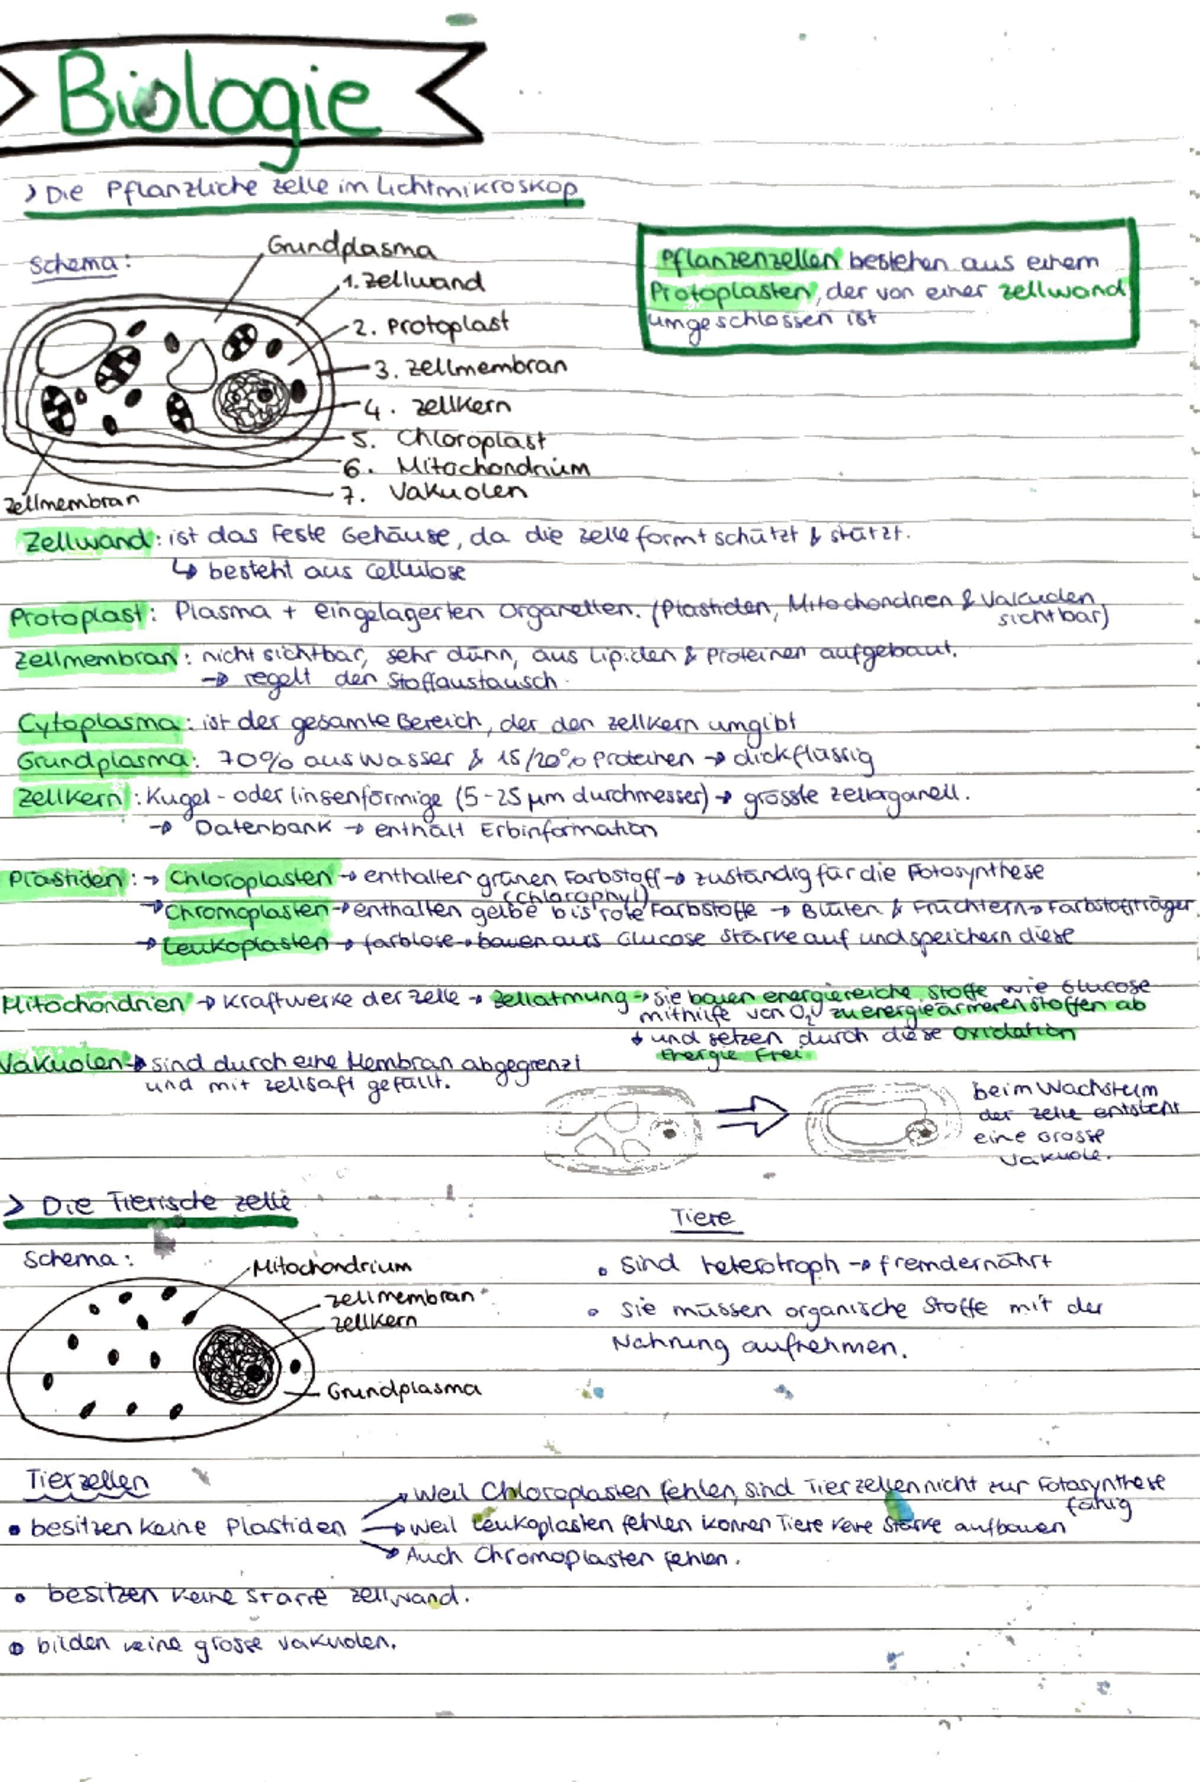 Biologie
> Die Pflanzliche Zelle im Lichtmikroskop
Schema:
Grundplasma
1. Zellwand
2. Protoplast
3. Zellmembran
4. Zellkern
5. Chloroplast
6. Mitochondrium
7. Vakuolen
Zellmembran
Pflanzenzellen bestehen aus einem
Protoplasten, der von einer Zellwand
umgeschlossen ist
Zellwand: ist das Feste Gehäuse, da die Zelle formt schützt & stützt.
↳ besteht aus Cellulose
Protoplast: Plasma + eingelagerten Organellen. (Plastiden, Mitochondrien & Vakuolen
sichtbar)
Zellmembran: nicht sichtbar, sehr dünn, aus Lipiden & Proteinen aufgebaut.
→ regelt den Stoffaustausch.
Cytoplasma: ist der gesamte Bereich, der den Zellkern umgibt
Grundplasma: 70% aus Wasser & 15/20% Proteinen → dickflüssig
Zellkern: Kugel- oder linsenförmige (5-25 µm durchmesser) → grösste Zellorganell.
→ Datenbank → enthält Erbinformation
Plastiden: → Chloroplasten → enthalten grünen Farbstoff → zuständig für die Fotosynthese
(Chlorophyl)
→ Chromoplasten → enthalten gelbe bis rote Farbstoffe → Blüten & Früchtern → Farbstoffträger
→ Leukoplasten → farblose → bauen aus Glucose Stärke auf und speichern diese
Mitochondrien → Kraftwerke der Zelle → Zellatmung → sie bauen energiereiche Stoffe wie Glucose
mithilfe von O₂ zu energieärmeren Stoffen ab
→ und setzen durch diese Oxidation
Energie frei.
Vakuolen → sind durch eine Membran abgegrenzt
und mit Zellsaft gefüllt.
beim Wachstum
der Zelle entsteht
eine Grosse
Vakuole.
> Die Tierische Zelle
Schema:
Mitochondrium
Zellmembran
Zellkern
Grundplasma
Tiere
• Sind heterotroph → fremdernährt
• Sie müssen organische Stoffe mit der
Nahrung aufnehmen.
Tierzellen
→ Weil Chloroplasten fehlen, sind Tierzellen nicht zur Fotosynthese
fähig
• besitzen keine Plastiden → weil Leukoplasten fehlen können Tiere keine Stärke aufbauen
→ Auch Chromoplasten fehlen.
• besitzen keine starre Zellwand.
• bilden keine grosse Vakuolen.